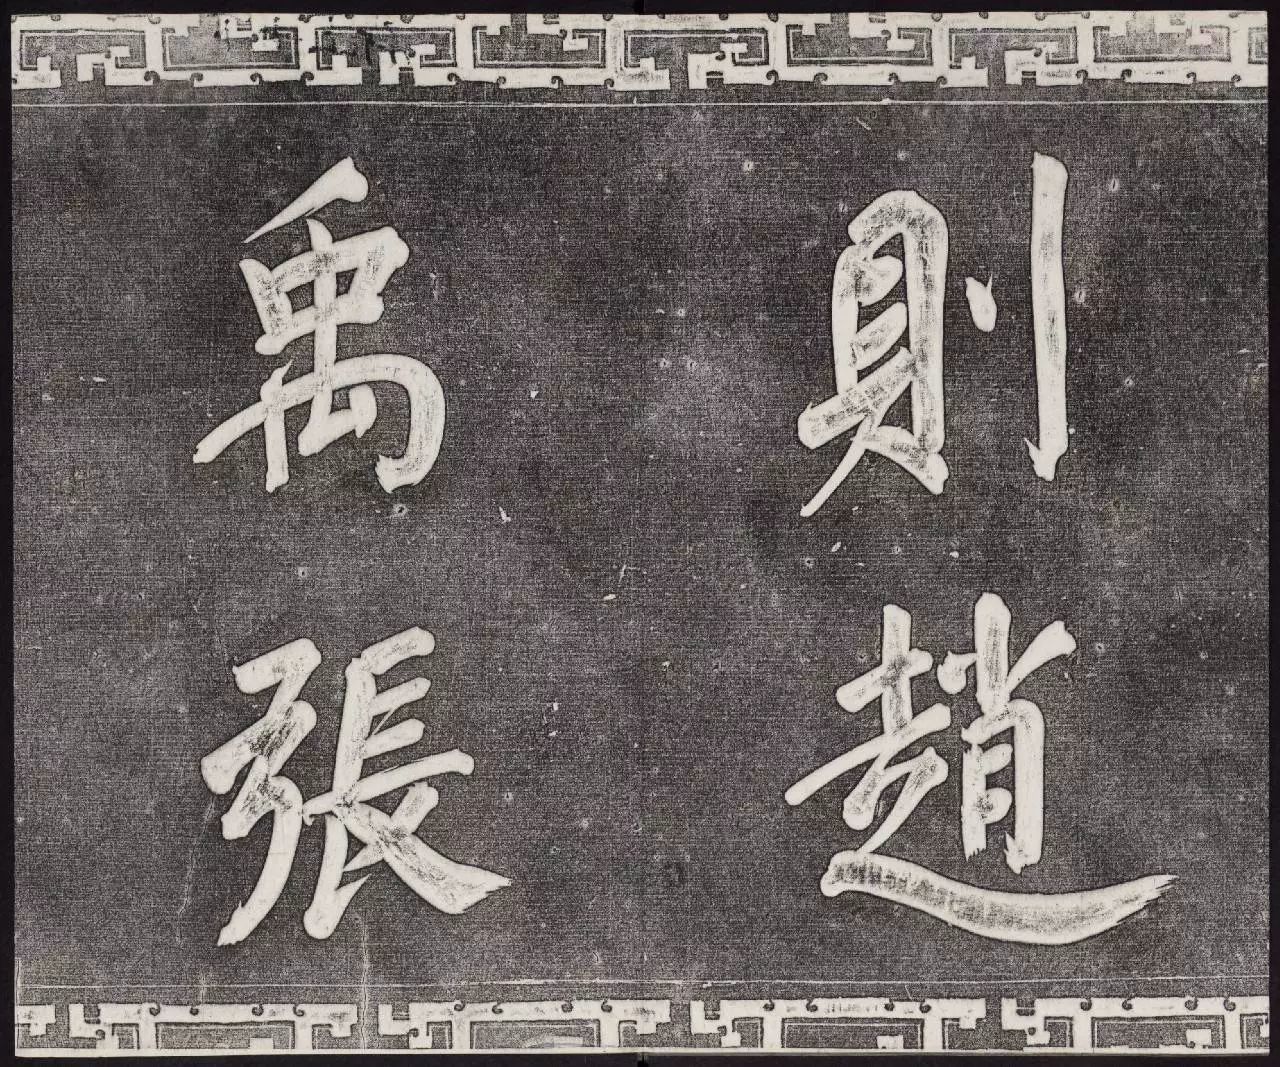 則趙
禹張